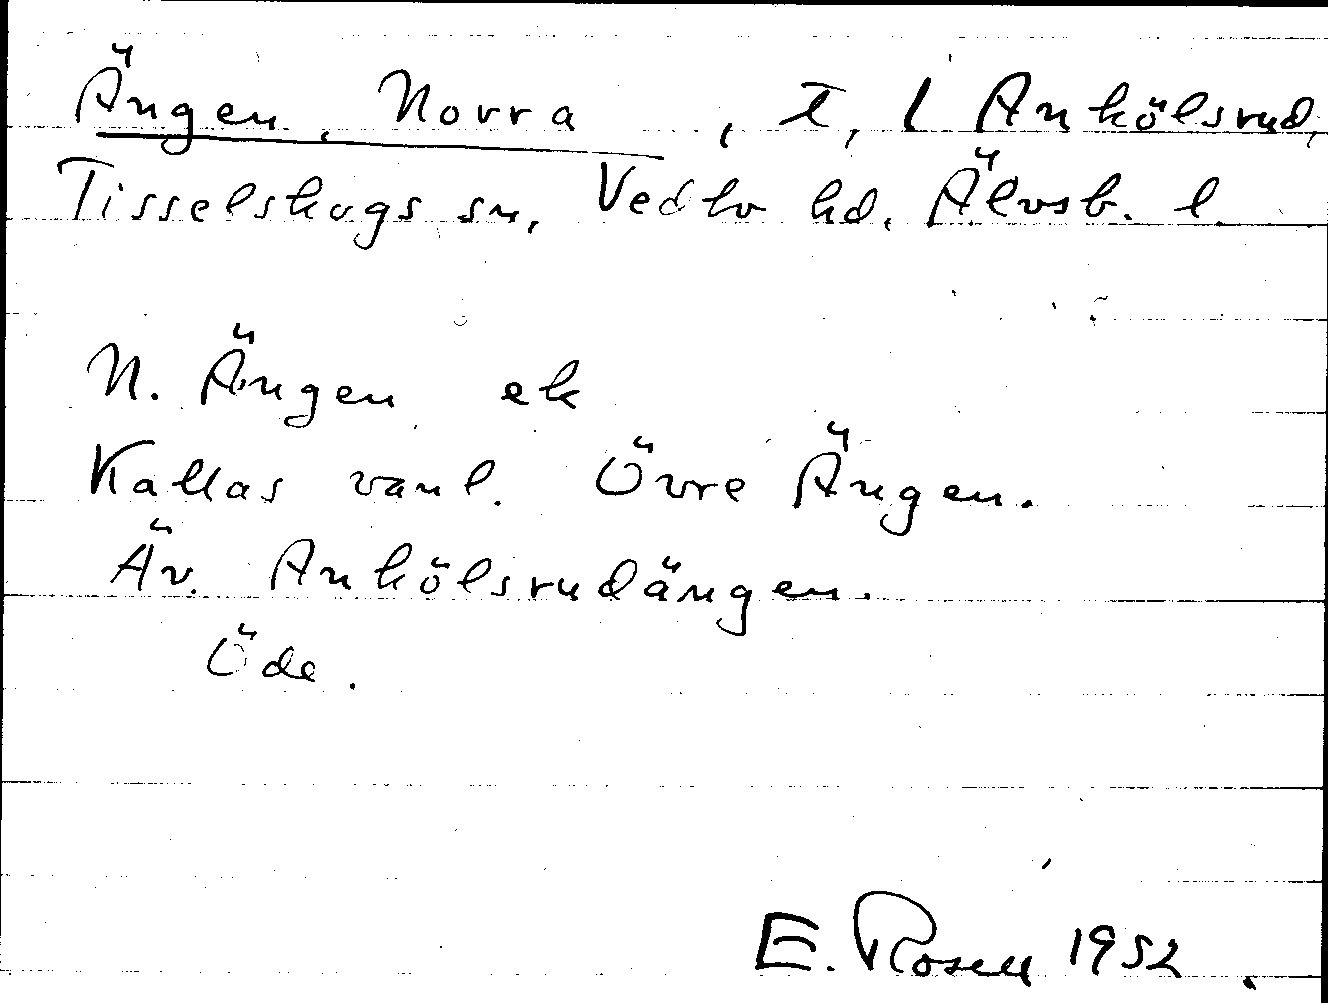 Ängen, Norra, T, l Ankölsrud,
Tisselskogs sn, Vedbo hd. Älvsb. l.
N. Ängen ek
Kallas vanl. Övre Ängen.
Äv. Ankölsrudängen.
Öde.
E. Rosell 1952.